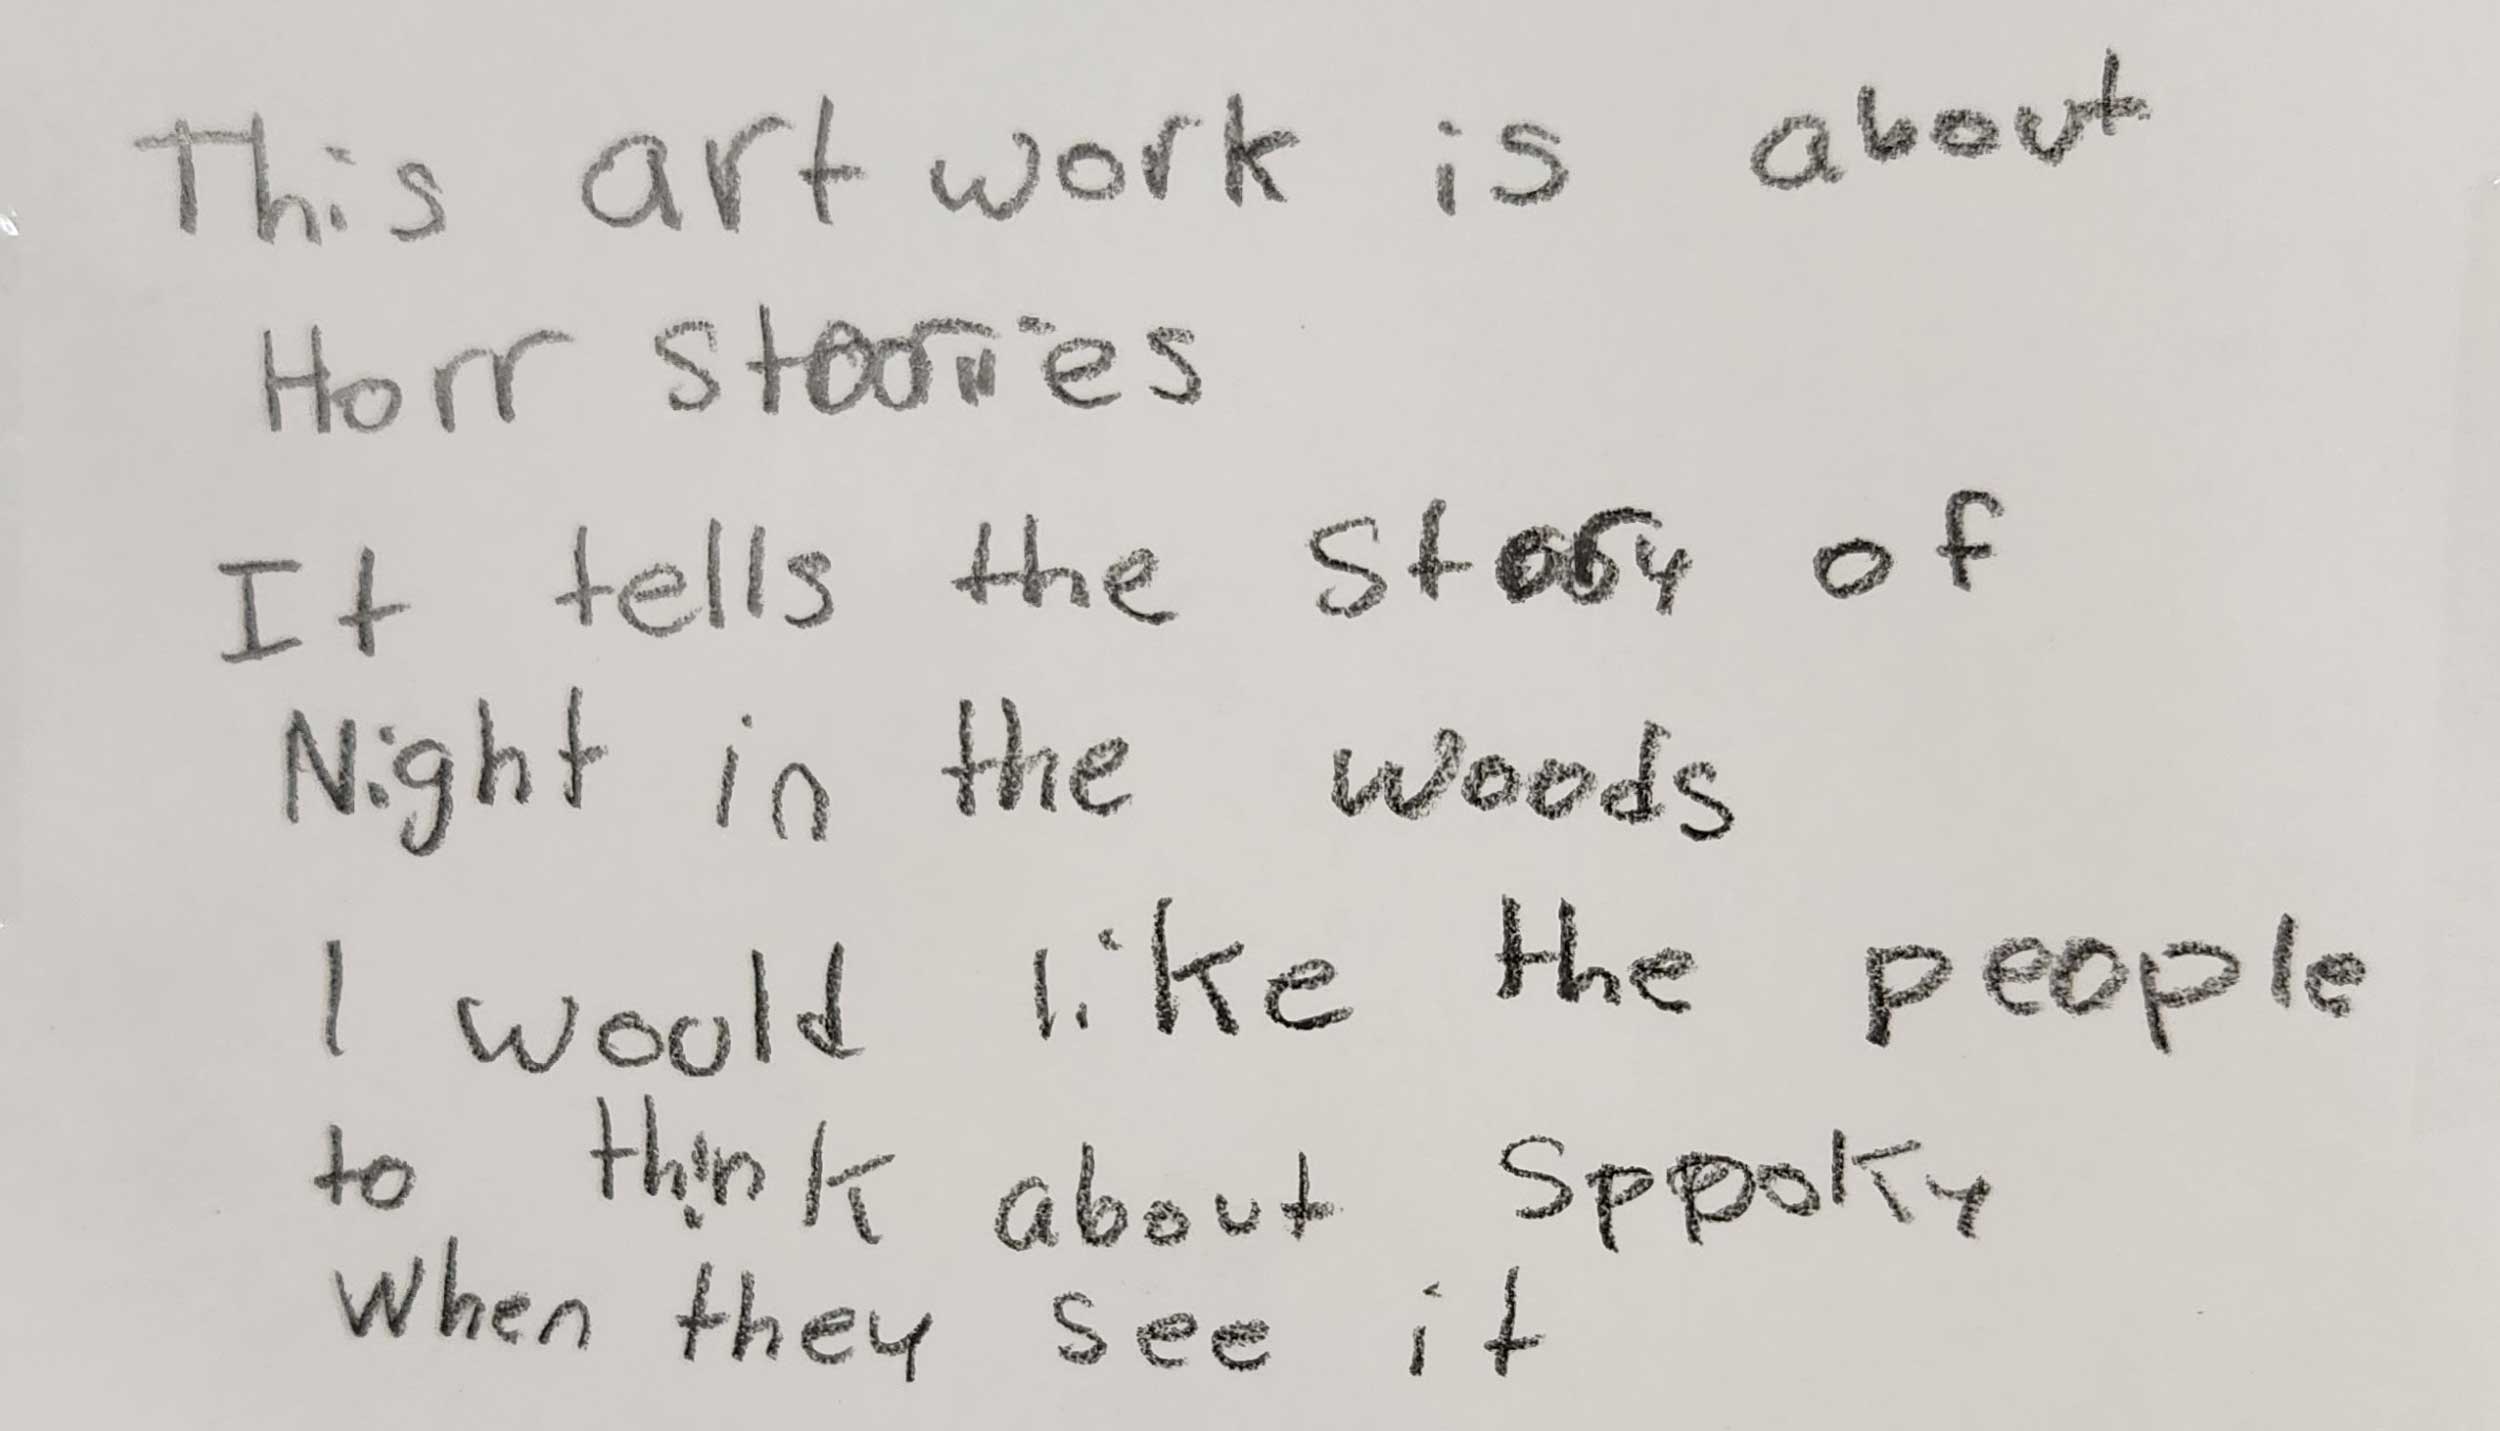 This art work is about
Horr stories
It tells the Story of
Night in the woods
I would like the people
to think about Sppoky
When they see it